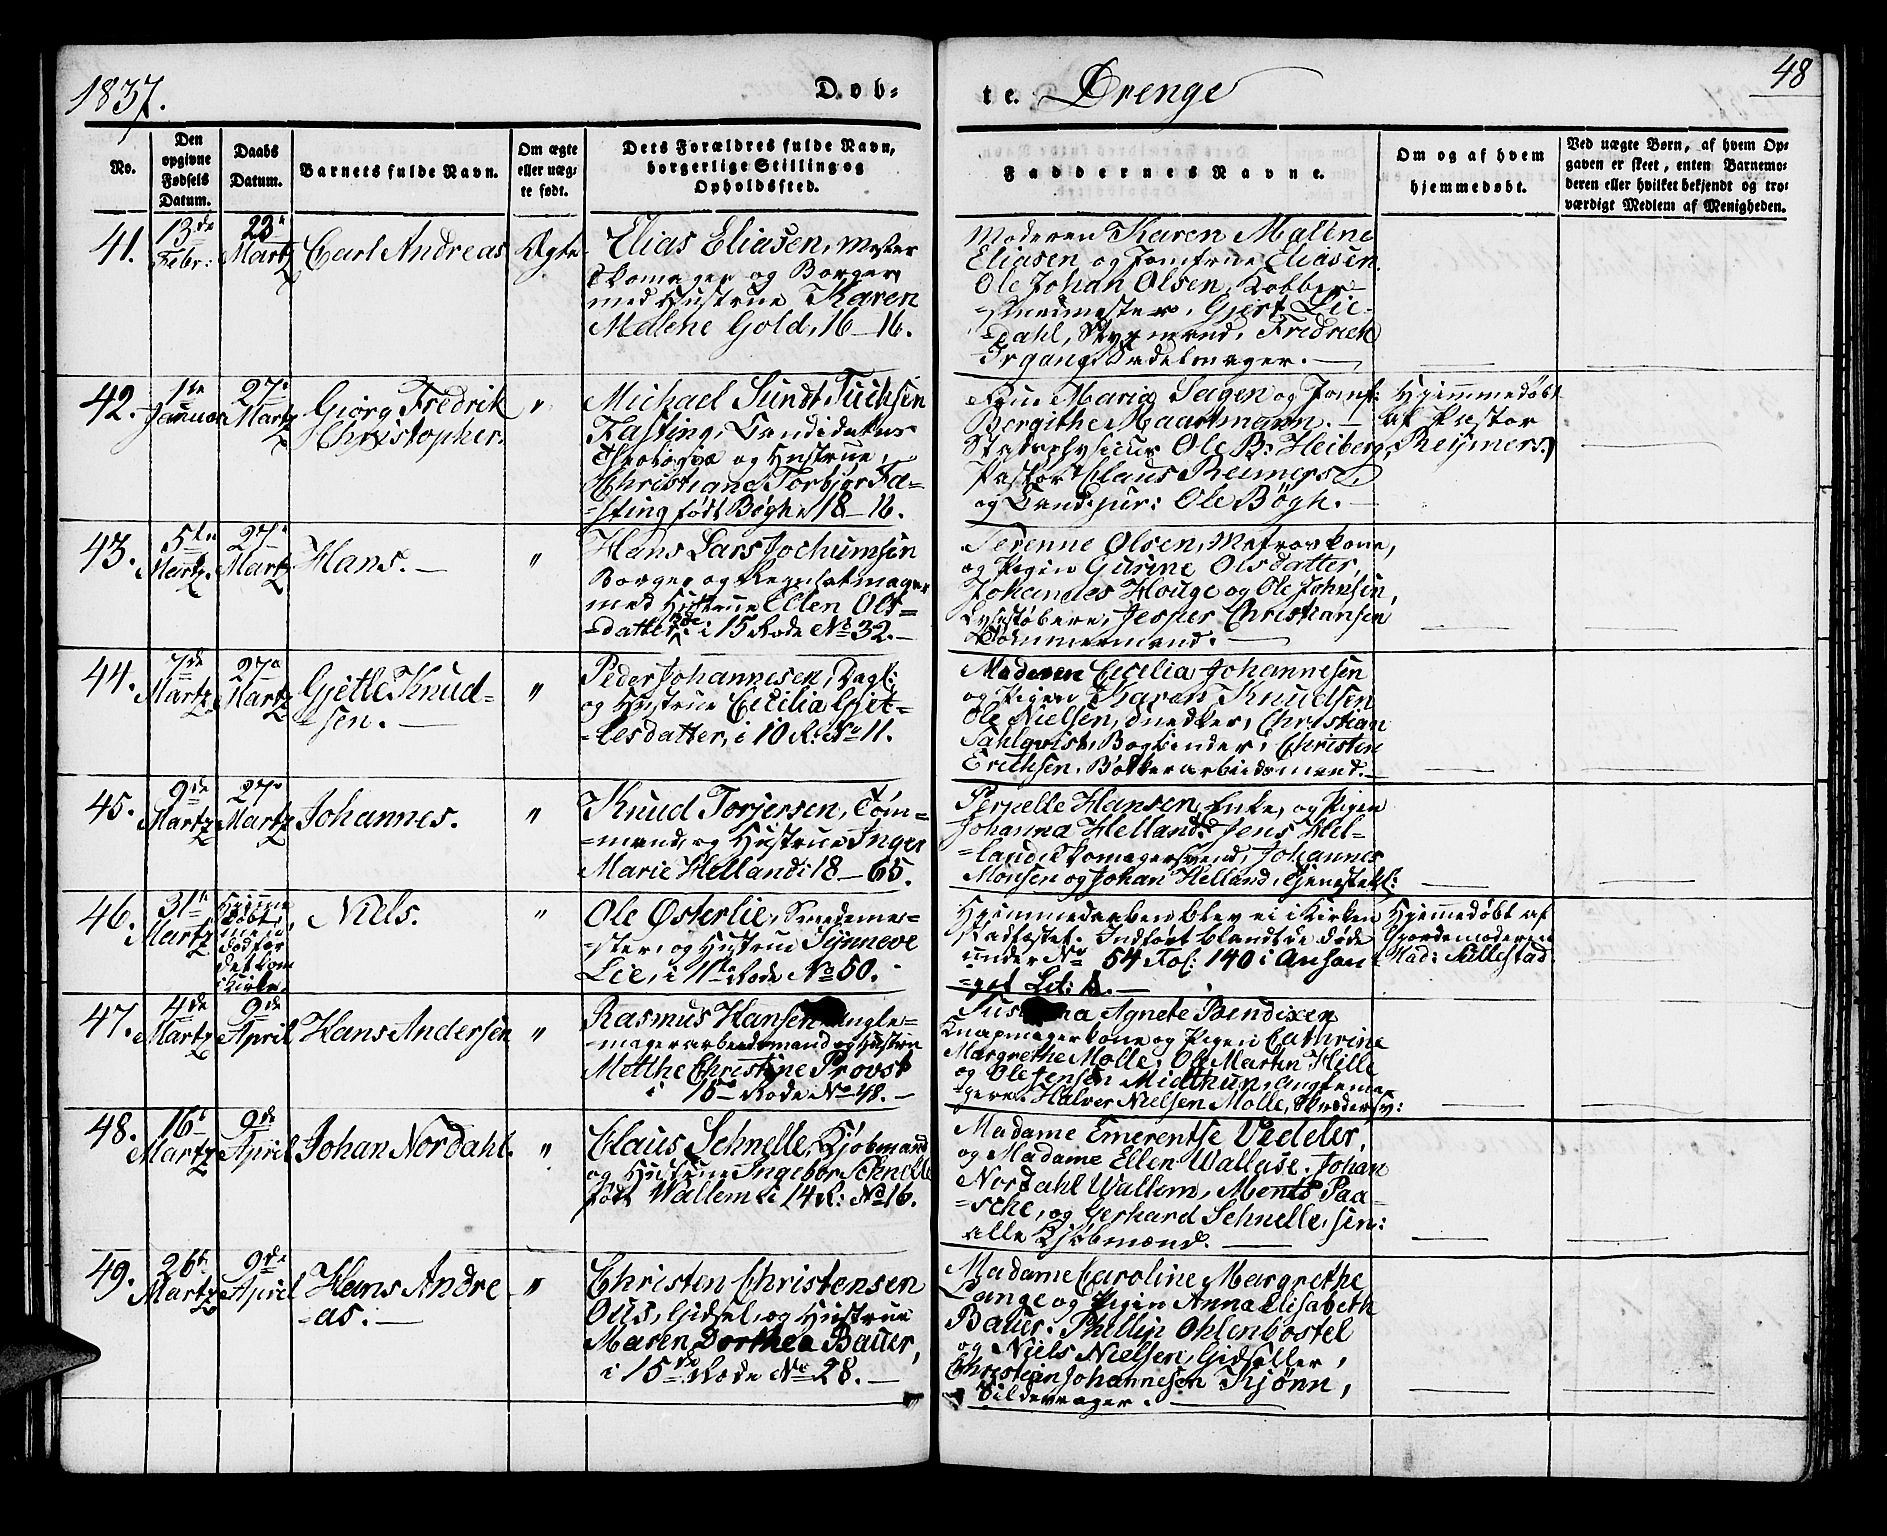 1837.
Døb-
te. Drenge
48
No.
Den opgivne Fødsels Datum.
Daabs Datum.
Barnets fulde Navn.
Om ægte eller uægte født.
Dets Forældres fulde Navn, borgerlige Stilling og Opholdssted.
Faddernes Navne.
Om og af hvem hjemmedøbt.
Ved uægte Børn, af hvem Opgaven er skeet, enten Barnemoderen eller hvilket bekjendt og troværdigt Medlem af Menigheden.
41.
13de Febr:
23' Martz
Carl Andreas
Ægte
Elias Eliasen, Mester
Skomager og Borger
med Hustrue Karen
Malene Gold, 16-16.
Moderen Karen Malene
Eliasen og Jomfrue Eliasen.
Ole Johan Olsen, Kobber-
-smedmester, Gjert Lie-
-dahl, Styrmand, Fredrik
Irgang, Sadelmager.
42.
1te Januar
27' Martz
Giørg Fredrik
Christopher.
"
Michael Sundt Tuchsen
Fasting, Candidatus
Theologiæ og Hustrue,
Christiane Torbjør Fa-
-sting født Bøgh i 18-16.
Frue Maria Sagen og Jomf:
Bergithe Maartmann.
Stadsphysicus Ole B. Heiberg,
Pastor Claus Reimers
og Cand: jur: Ole Bøgh.
Hjemmedøbt
af Pastor
Reymers.
43.
5te Martz.
27' Martz
Hans.
"
Hans Lars Jochumsen
Borger og
med Hustrue Ellen Ols-
-datter, i 15 Rode No 32.
Serenne Olsen, Matroskone,
og Pigen Gurine Olsdatter,
Johannes Houge og Ole Johnsen,
Lysestøbere, Jesper Christiansen
Tømmermand.
44.
7de Martz
27' Martz
Gjetle Knud-
-sen.
"
Peder Johannesen, Dagl:
og Hustrue Cecilia Gjet-
-lesdatter, i 10 R: No 11.
Moderen Cecilia Johannesen
og Pigen Karen Knudsen
Ole Nielsen, Snedker, Christian
Sahlqvist, Bogbinder, Christen
Erichsen, Bøkkerarbeidsmand.
45.
9de Martz
27' Martz
Johannes.
"
Knud Torjersen, Tøm-
-mermand, og Hustrue Inger
Marie Helland i 18-65.
Pernelle Hansen, Enke, og Pigen
Johanna Helland. Jens Hel-
-land Skomagersvend, Johannes
Monsen og Johan Helland, Tjenestekl:
46.
31te Martz
Hjemme
døbt,
men
død før
det kom
i Kirke.
Niels.
"
Ole Østerlie, Smedeme-
-ster, og Hustrue Synneve
Lie, i 11te Rode No 50.
Hjemmedaaben blev ei i Kirken
stadfæstet. Indført blandt de døde
under No 54 Fol: 140 i
Lit: A.
Hjemmedøbt af
Gjordemoderen
Mad: Sillestad.
47.
4de Martz
9de April
Hans Andersen
"
Rasmus Hansen Angle-
-magerarbeidsmand og Hustrue
Metthe Christine Provst
i 15 Rode No 48.
Agnete Bendixen
Knapmagerkone og Pigen Cathrine
Margrethe Molle, Ole Martin Hille
og Ole Jensen Midthun, Anglema-
-gere. Halver Nielsen Molle, Skrædersv:
48.
16' Martz
9de April
Johan Nordahl.
"
Claus Schnelle, Kjøbmand
og Hustrue Ingebor Schnelle
født Wallem i 14 R: No 16.
Madame Emerentse Vedeler,
og Madame Ellen Wallase. Johan
Nordahl Wallem, Monts Paa-
-sche, og Gerhard Schnelle, sen:
alle Kjøbmænd.
49.
26' Martz
9de April
Hans Andre
-as.
"
Christen Christensen
Ous, Gidsel, og Hustrue
Maren Dorthea Bauer,
i 15de Rode No 28.
Madame Caroline Margrethe
Lange og Pigen Anna Elisabeth
Bauer. Phillip Ohlenbostel
og Niels Nielsen, Gidseller,
Christein Johannesen Kjønn,
Sildevrager.